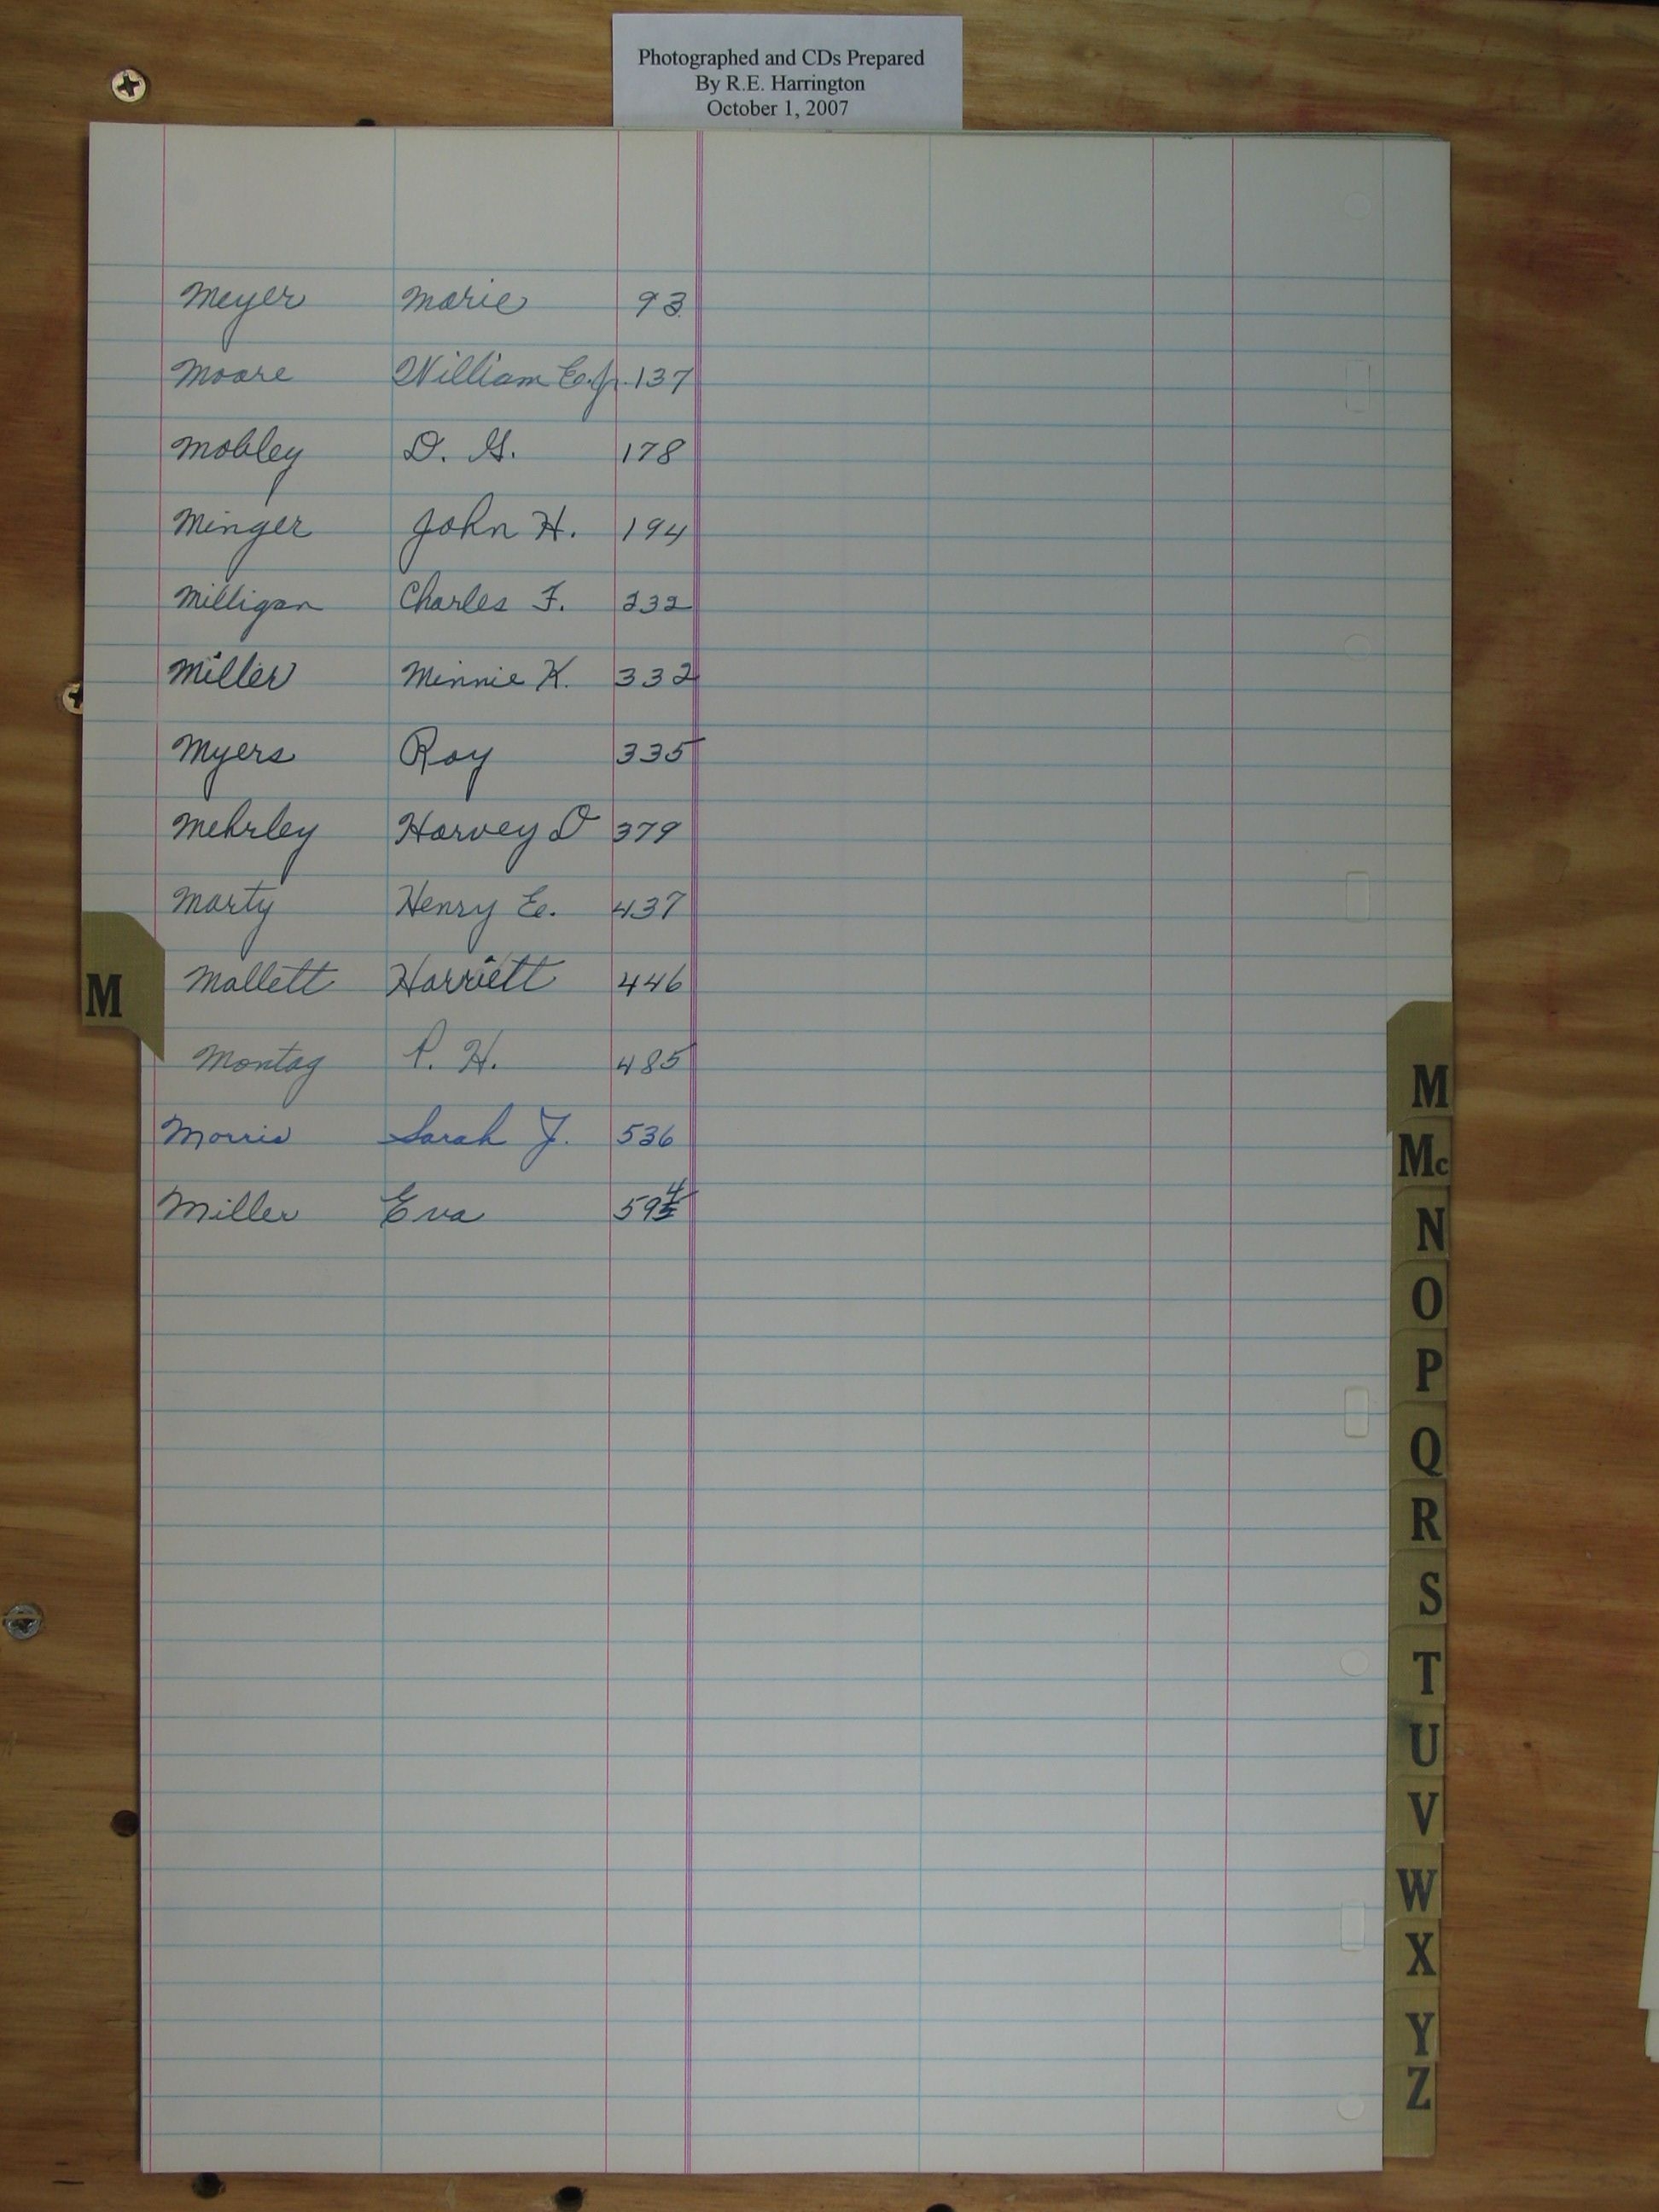 Photographed and CDs Prepared
By R.E. Harrington
October 1, 2007
Meyer Marie 93
Moore William E. Jr. 137
Mobley D. G. 178
Minger John H. 194
Milligan Charles F. 232
Miller Minnie K. 332
Myers Roy 335
Mehrley Harvey D 379
Marty Henry E. 437
Mallett Harriett 446
Montag P. H. 485
Morris Sarah J. 536
Miller Eva 594
M
M
Mc
N
O
P
Q
R
S
T
U
V
W
X
Y
Z